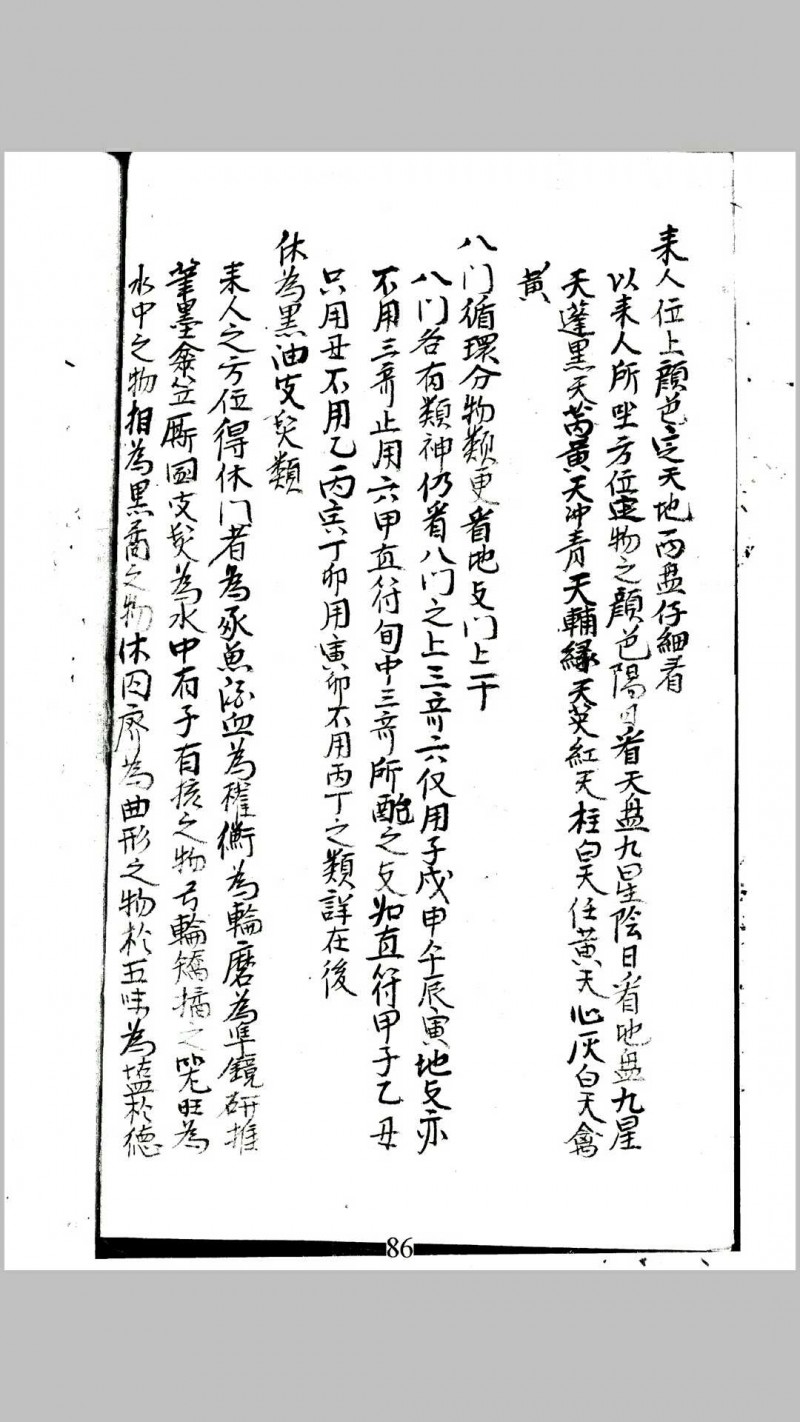 来人位上顔色定天地両盘仔細看
以来人所坐方位定物之顔色陽日看天盘九星陰日看地盘九星
天蓬黒天芮黄天冲青天輔緑天英紅天柱白天任黄天心灰白天禽
黄
八门循環分物類更看地支门上干
八门各有類神仍看八门之上三竒六仪用子戌申午辰寅地支亦
不用三竒止用六甲直符旬中三竒所配之支如直符甲子乙丑
只用丑不用乙丙寅丁卯用寅卯不用丙丁之類詳在後
休為黒油皮髮類
来人之方位得休门者為豕魚流血為權衡為輪磨為準鏡研推
筆墨傘笠厮圊皮髮為水中有子有核之物弓輪矯揉之 旺為
水中之物相為黒喬之物休囚廢為曲形之物於五味為塩於德
86